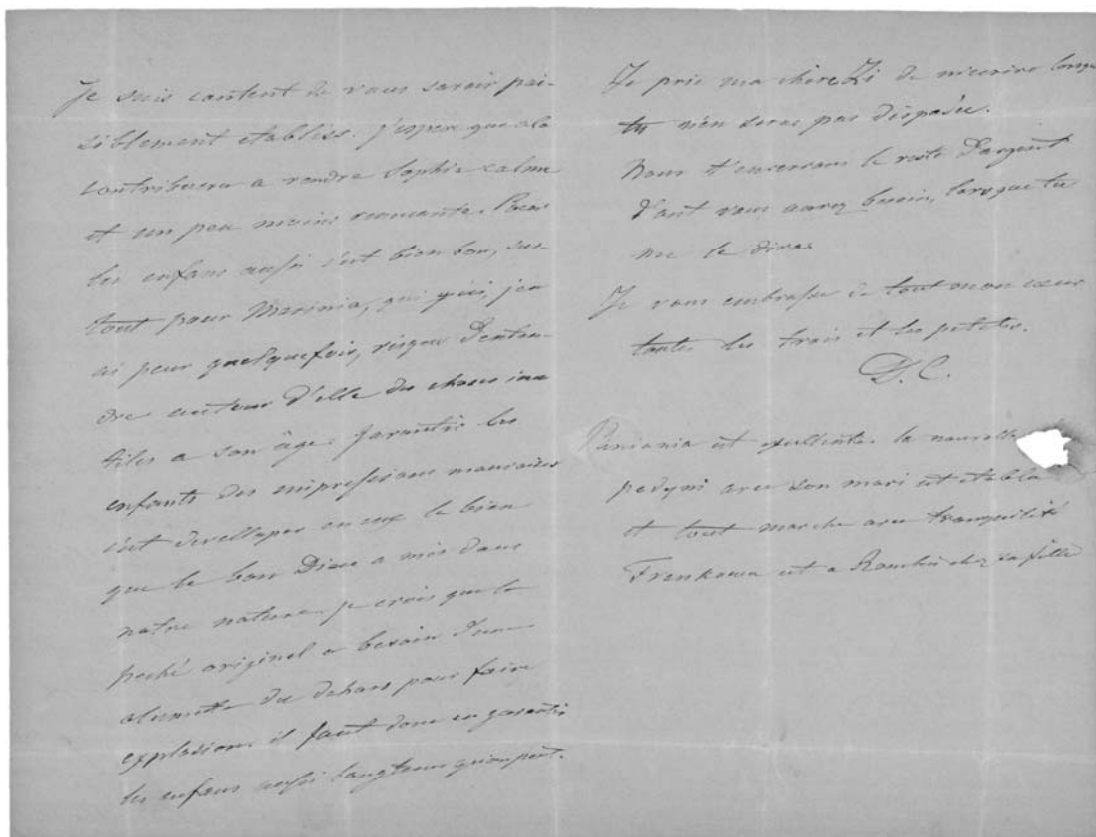 Je suis content de vous savoir pai-
siblement etabliss. j'espere que cela
contribuera a rendre Sophie calme
et un peu moins remuante. Pour
les enfans aussi c'est bien bon, sur
tout pour Marinia, qui ici, j'en
ai peur quelquefois, risque d'enten-
dre autour d'elle des choses inu
tiles a son âge. garantir les
enfants des impressions mauvaises
c'est develloper en eux le bien
que le bon Dieu a mis dans
notre nature. je crois que le
peché originel a besoin d'une
alumette du dehors pour faire
explosion. il faut donc en garantir
les enfans aussi longtems qu'on peut.
Je prie ma chere Zi de m'ecrire lorsque
tu n'en seras pas disposée.
Nous t'enverrons le reste d'argent
dont vous aurez besoin, lorsque tu
me le diras
Je vous embrasse de tout mon cœur
toutes les trois et les petites.
D. C.
est excellente. la nouvelle
avec son mari est etablie
et tout marche avec tranquilité
Frankowa est a chez sa fille